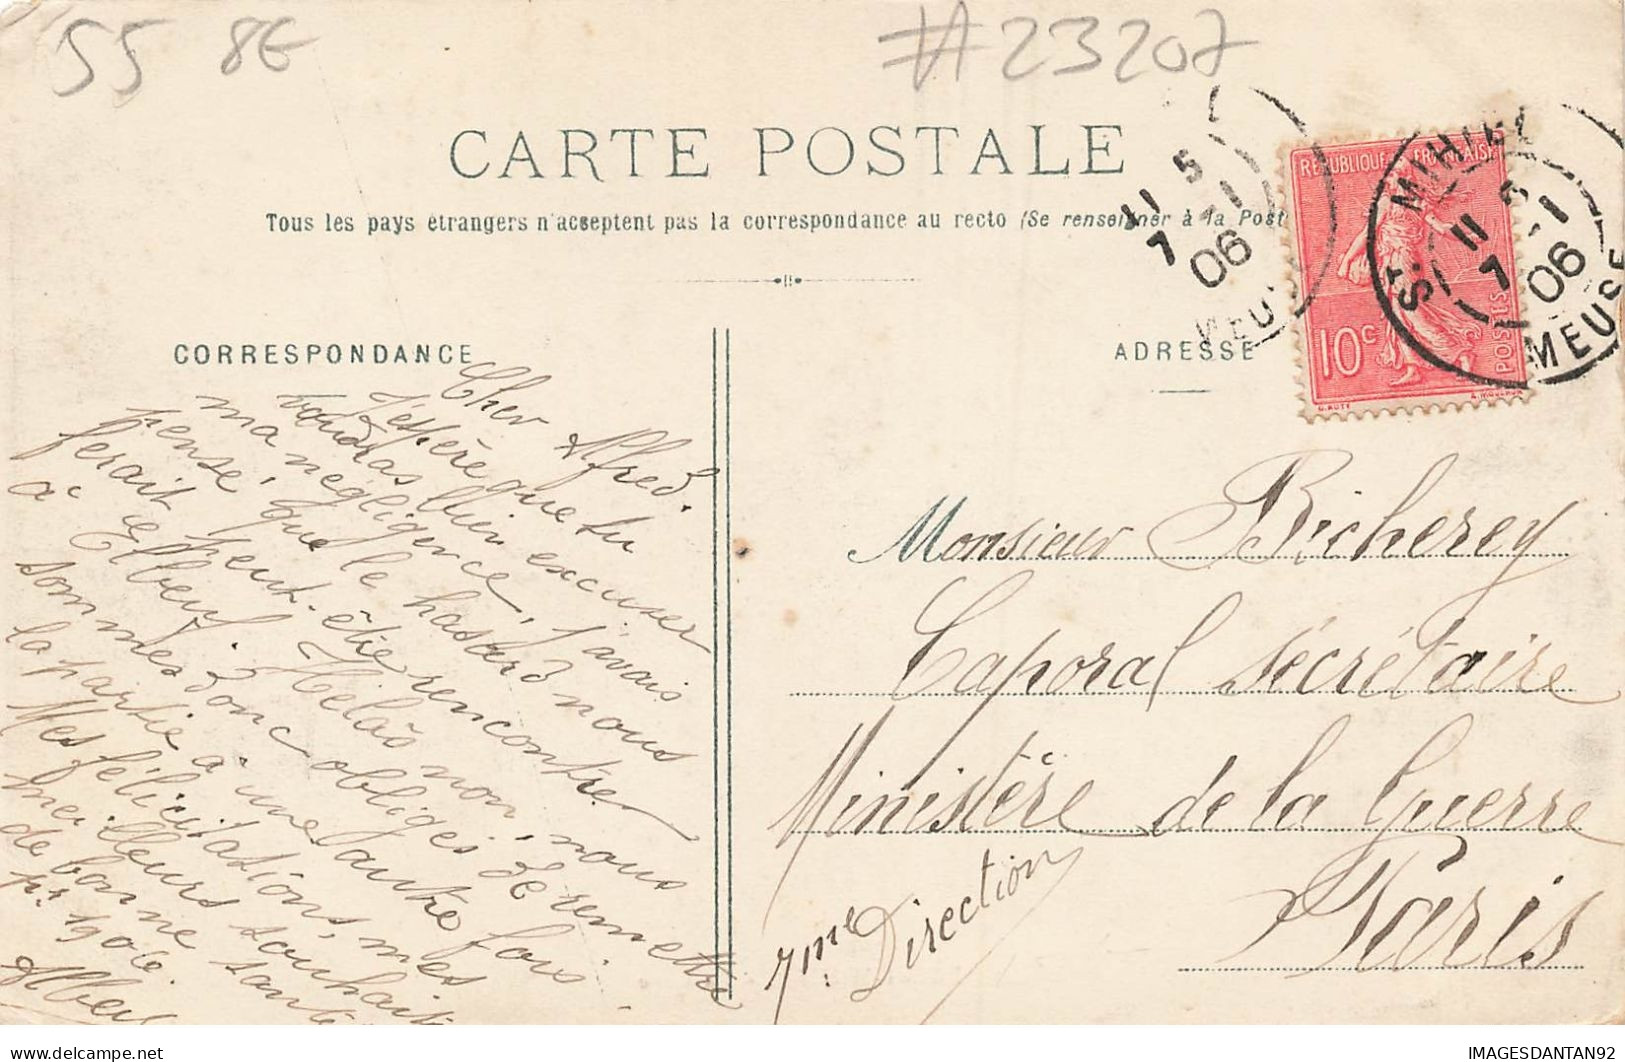 55 8E
#23207
CARTE POSTALE
Tous les pays étrangers n'acceptent pas la correspondance au recto (Se renseigner à la Poste
CORRESPONDANCE
ADRESSE
REPUBLIQUE FRANÇAISE
10c
POSTES
11 5
7 -1
06
MEUSE
ST MIHIEL
11 5
7 -1
06
MEUSE
Cher Alfred.
J'espère que tu
voudras bien excuser
ma négligence, j'avais
pensé, que le hasard nous
ferait peut-être rencontre
à Elbeuf. Hélas non, nous
sommes donc obligés de remettre
la partie à une autre fois.
Mes félicitations, mes
meilleurs souhaits
de bonne santé
pr 1906.
Monsieur Bicherey
Caporal secrétaire
Ministère de la Guerre
7me Direction
Paris
IMAGESDANTAN92